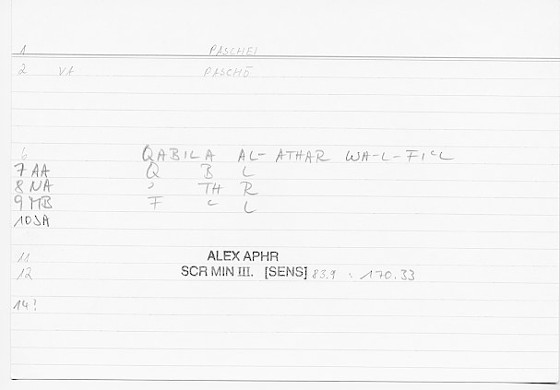 1 PASCHEI
2 VA PASCHŌ
6 QABILA AL-ATHAR WA-L-FIʿL
7 AA Q B L
8 NA ʾ TH R
9 MB F ʿ L
10 JA
11 ALEX APHR
12 SCR MIN III. [SENS] 83.9 : 170.33
14!